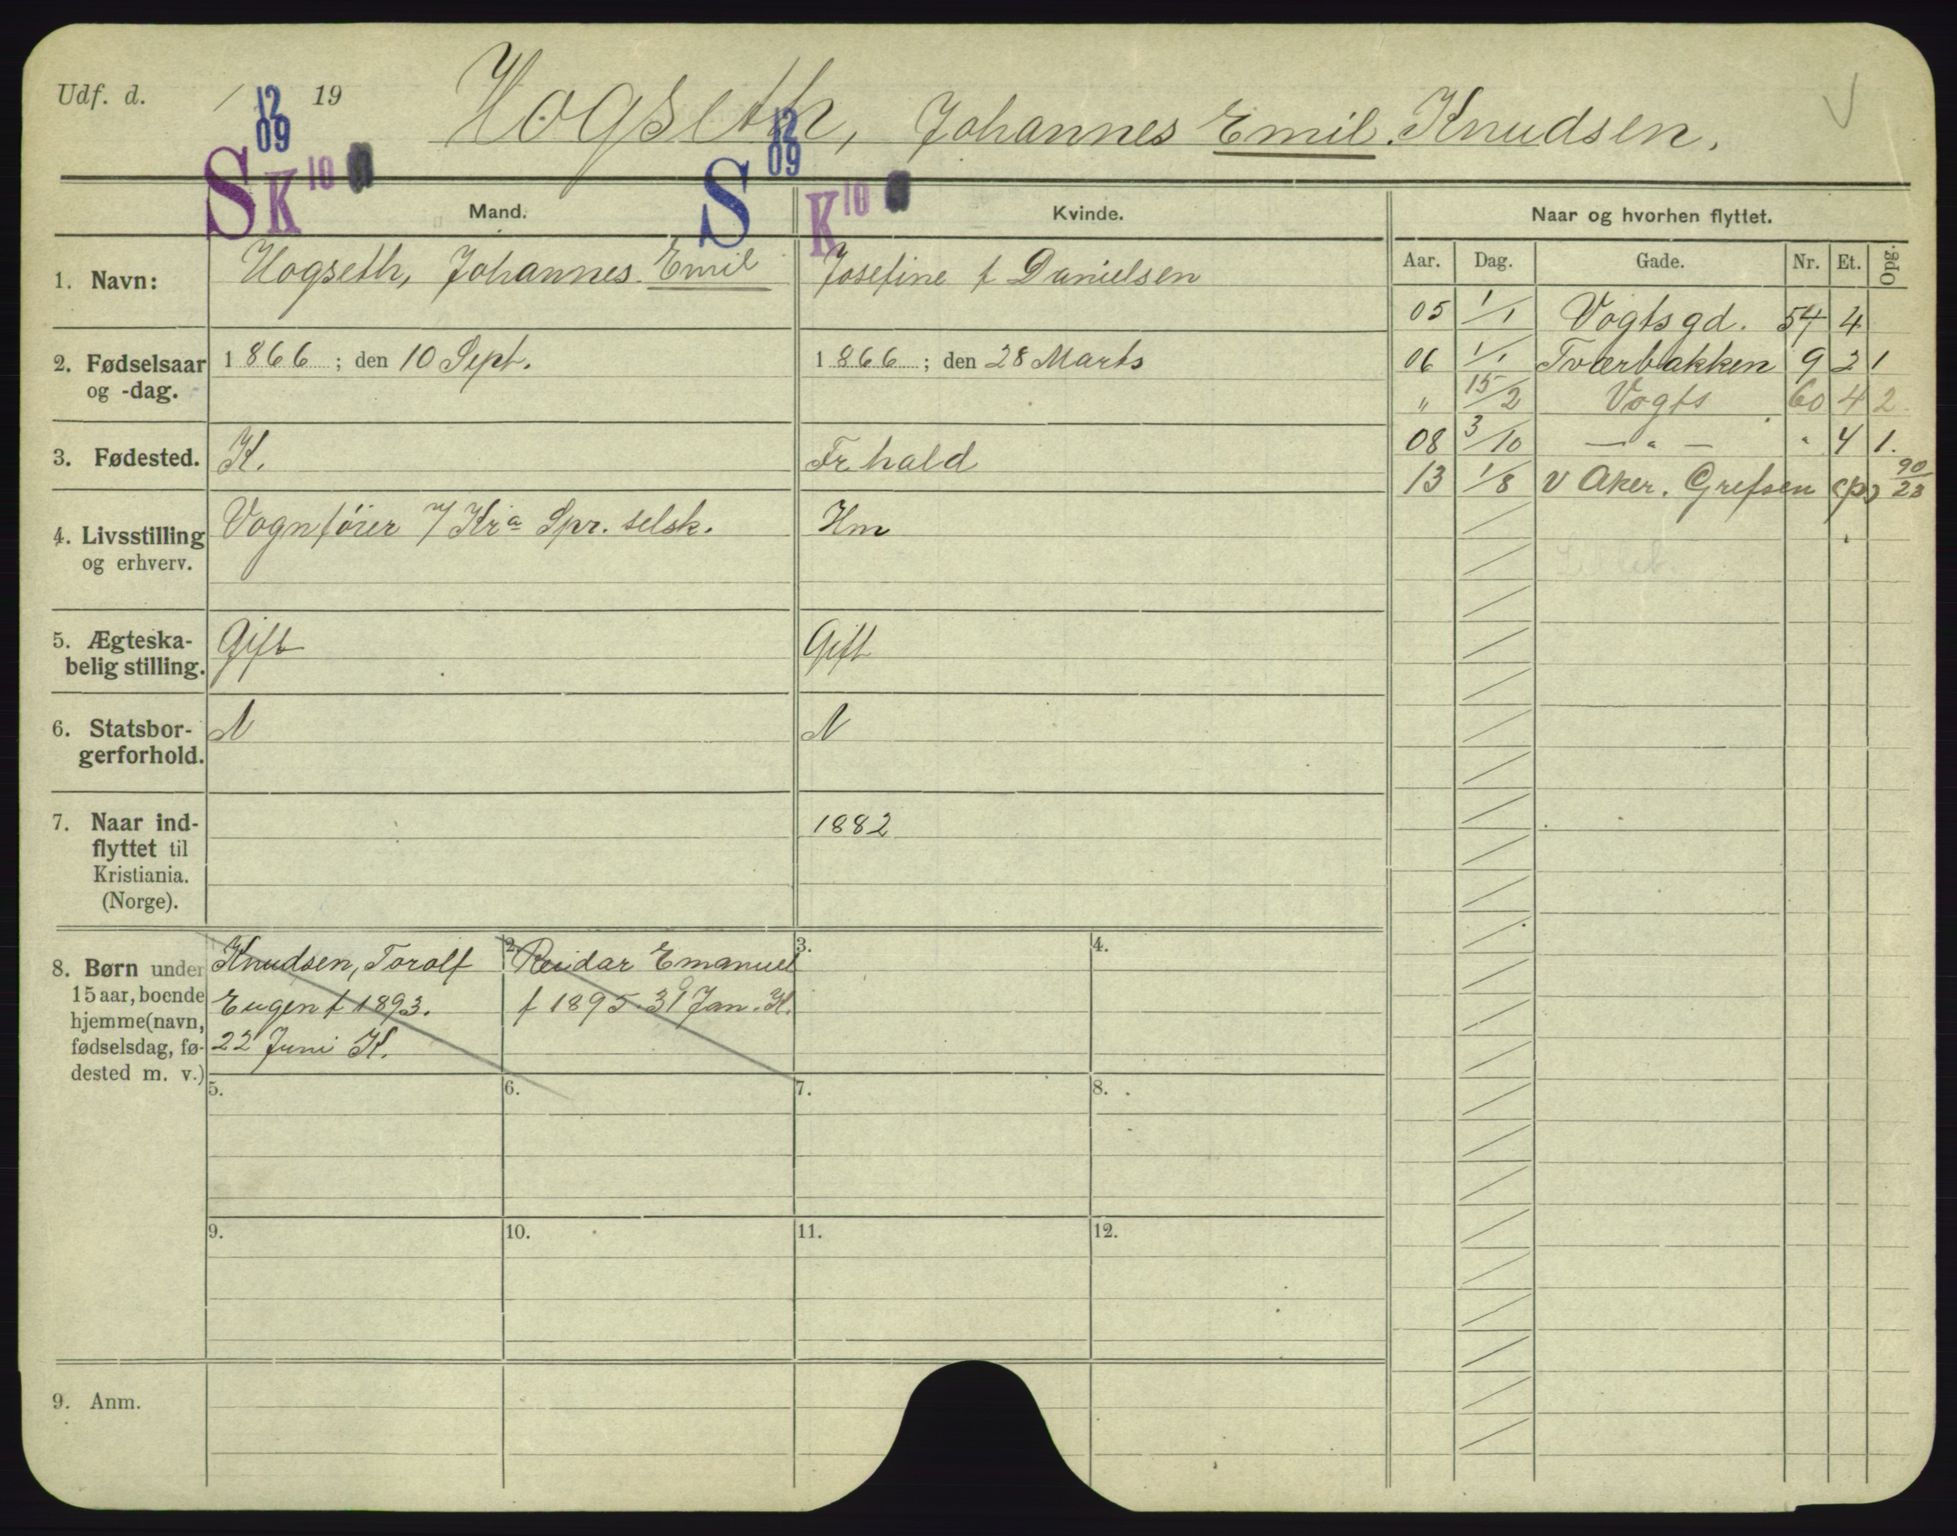 Udf. d. / 19
Hogseth, Johannes Emil. Knudsen.
12
09
S K 10
12
09
S K 10
Mand.
Kvinde.
Naar og hvorhen flyttet.
Aar. Dag. Gade. Nr. Et. Opg.
1. Navn:
Hogseth, Johannes. Emil
Josefine f Danielsen
2. Fødselsaar
og -dag.
1866; den 10 Sept.
1866; den 28 Marts
3. Fødested.
K.
Fr hald
4. Livsstilling
og erhverv.
Vognfører v/ Kra Spr. selsk.
Hm
5. Ægteska-
belig stilling.
Gift
Gift
6. Statsbor-
gerforhold.
N
N
7. Naar ind-
flyttet til
Kristiania.
(Norge).
1882
8. Børn under
15 aar, boende
hjemme (navn,
fødselsdag, fø-
dested m. v.)
1.
Knudsen, Torolf
Eugen f 1893.
22 Juni K.
2.
Reidar Emanuel
f 1895. 31 Jan. K.
3.
4.
5.
6.
7.
8.
9.
10.
11.
12.
9. Anm.
05 1/1 Vogts gd. 54 4
06 1/1 Tværbakken 9 2 1
" 15/2 Vogts 60 4 2
08 3/10 — " — " 4 1.
13 1/8 v Aker. Grefsen (p) 90/23